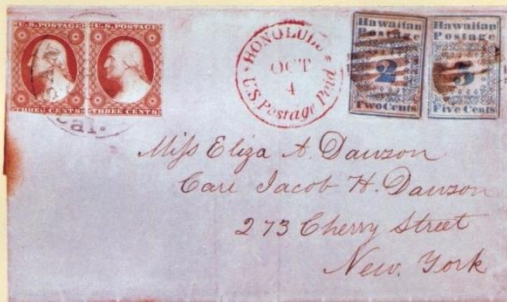 U.S. POSTAGE
THREE CENTS
U.S. POSTAGE
THREE CENTS
Cal.
HONOLULU
OCT
4
U.S. Postage Paid
Hawaiian
Postage
2
Two Cents
Hawaiian
Postage
5
Five Cents
Miſs Eliza A. Dawson
Care Jacob H. Dawson
273 Cherry Street
New. York